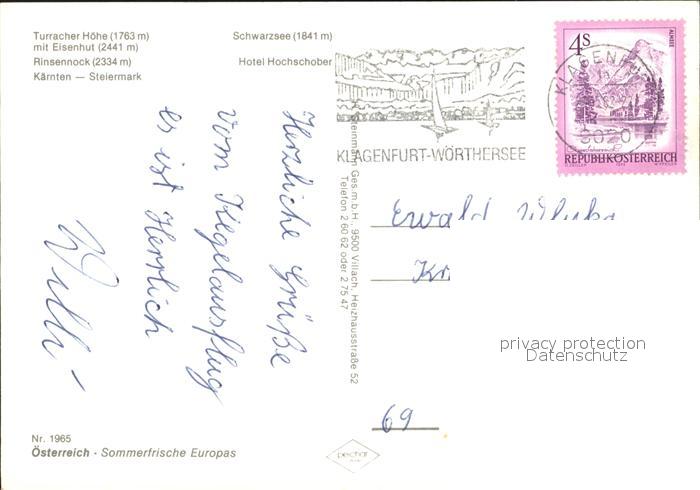 Turracher Höhe (1763 m)
mit Eisenhut (2441 m)
Rinsennock (2334 m)
Kärnten — Steiermark
Schwarzsee (1841 m)
Hotel Hochschober
KLAGENFURT-WÖRTHERSEE
4S
ALMSEE
KLAGENFU
9020
REPUBLIK ÖSTERREICH
Herzliche Grüße
vom Kegelausflug
es ist Herrlich
Willi
Steinmann Ges.m.b.H., 9500 Villach, Heizhausstraße 52
Telefon 2 60 62 oder 2 75 47
Ewald
Kr.
69
privacy protection
Datenschutz
Nr. 1965
Österreich - Sommerfrische Europas
pechar